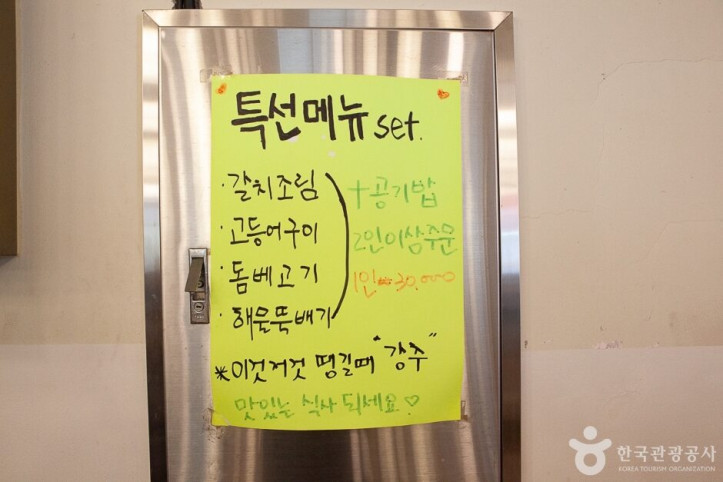 특선메뉴 set.
· 갈치조림
· 고등어구이
· 돔베고기
· 해물뚝배기
+공기밥
2인이상주문
1인 30,000
※이것저것 땡길때 "강추"
맛있는 식사 되세요♡
한국관광공사
KOREA TOURISM ORGANIZATION